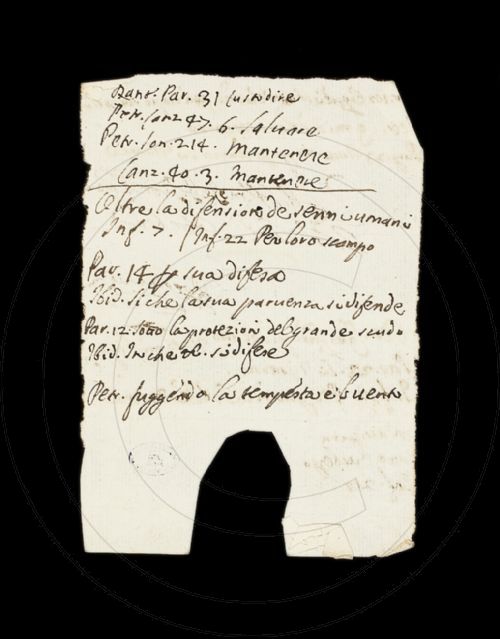 Dant. Par. 31 custodire
Petr. Canz. 47. 6. salvare
Petr. Son. 214. mantenere
Canz. 40. 3. mantenere
Oltre la difension de senni umani
Inf. 7. Inf. 22 Per loro scampo
Par. 14 sua difesa
Ibid. siche la sua parvenza si difende
Par. 12. sotto la protezion del grande scudo
Ibid. In che si difese
Petr. fuggendo la tempesta e'l vento